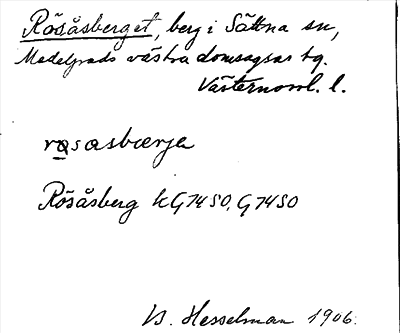 Rösåsberget, berg i Sättna sn,
Medelpads västra domsagas tg.
Västernorrl. l.
røsasbærje
Rösåsberg kG74SO, G74SO
B. Hesselman 1906.